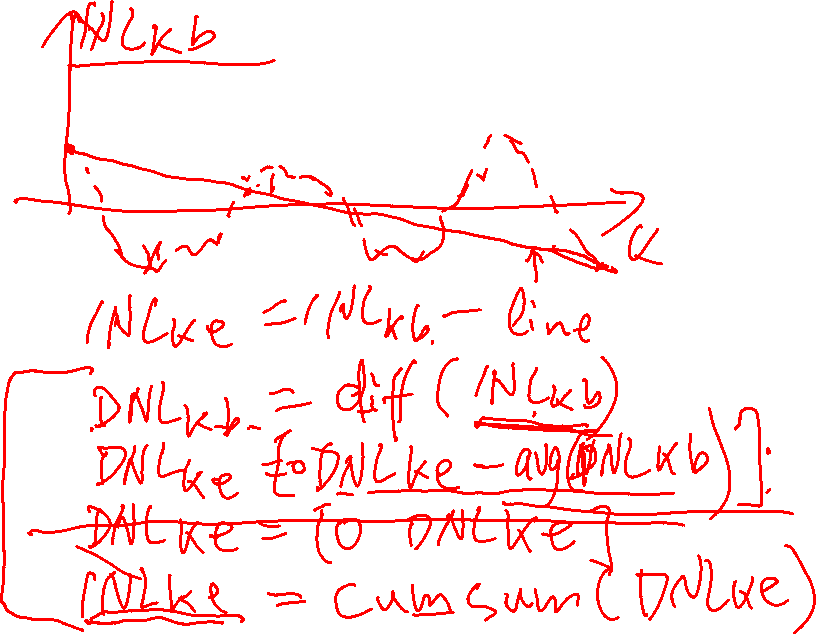 INLkb
k
INLke = INLkb - line
DNLkb = diff(INLkb)
DNLke [0 DNLke - avg(DNLkb)]:
DNLke = [0 DNLke]
INLke = cumsum(DNLke)